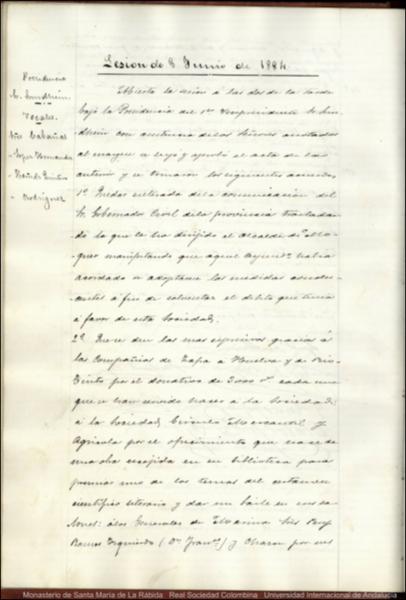 Sesion de 8 Junio de 1884.
Presidencia
Sr. Sundheim
Vocales
Cabañas
Lopez Hernandez
Quintero
Rodriguez
Abierta la sesion á las dos de la tarde
bajo la Presidencia del 1er Vicepresidente Sr. Sun-
dheim con asistencia de los Señores anotados
al margen se leyó y aprobó el acta de la
anterior y se tomaron los siguientes acuerdos
1º Quedar enterada de la comunicacion del
Sr. Gobernador Civil de la provincia trasladan-
do la que le ha dirigido el Alcalde de Mo-
guer manifestando que aquel Ayuntº habia
acordado se adoptasen las medidas
á fin de solventar el débito que tiene
á favor de esta Sociedad.
2º Que se den las mas expresivas gracias á
las Compañias de Zafra á Huelva y de Rio-
Tinto por el donativo de 3000 rs cada una
que se han servido hacer á la Sociedad:
á la Sociedad Circulo Mercantil y
Agricola por el ofrecimiento que hace de
una obra escojida en su biblioteca para
premiar uno de los temas del certamen
cientifico literario y dar un baile en sus sa-
lones: á los Generales de Marina
Ramos Izquierdo (Dn Franco) y por sus
Monasterio de Santa María de La Rábida Real Sociedad Colombina Universidad Internacional de Andalucía